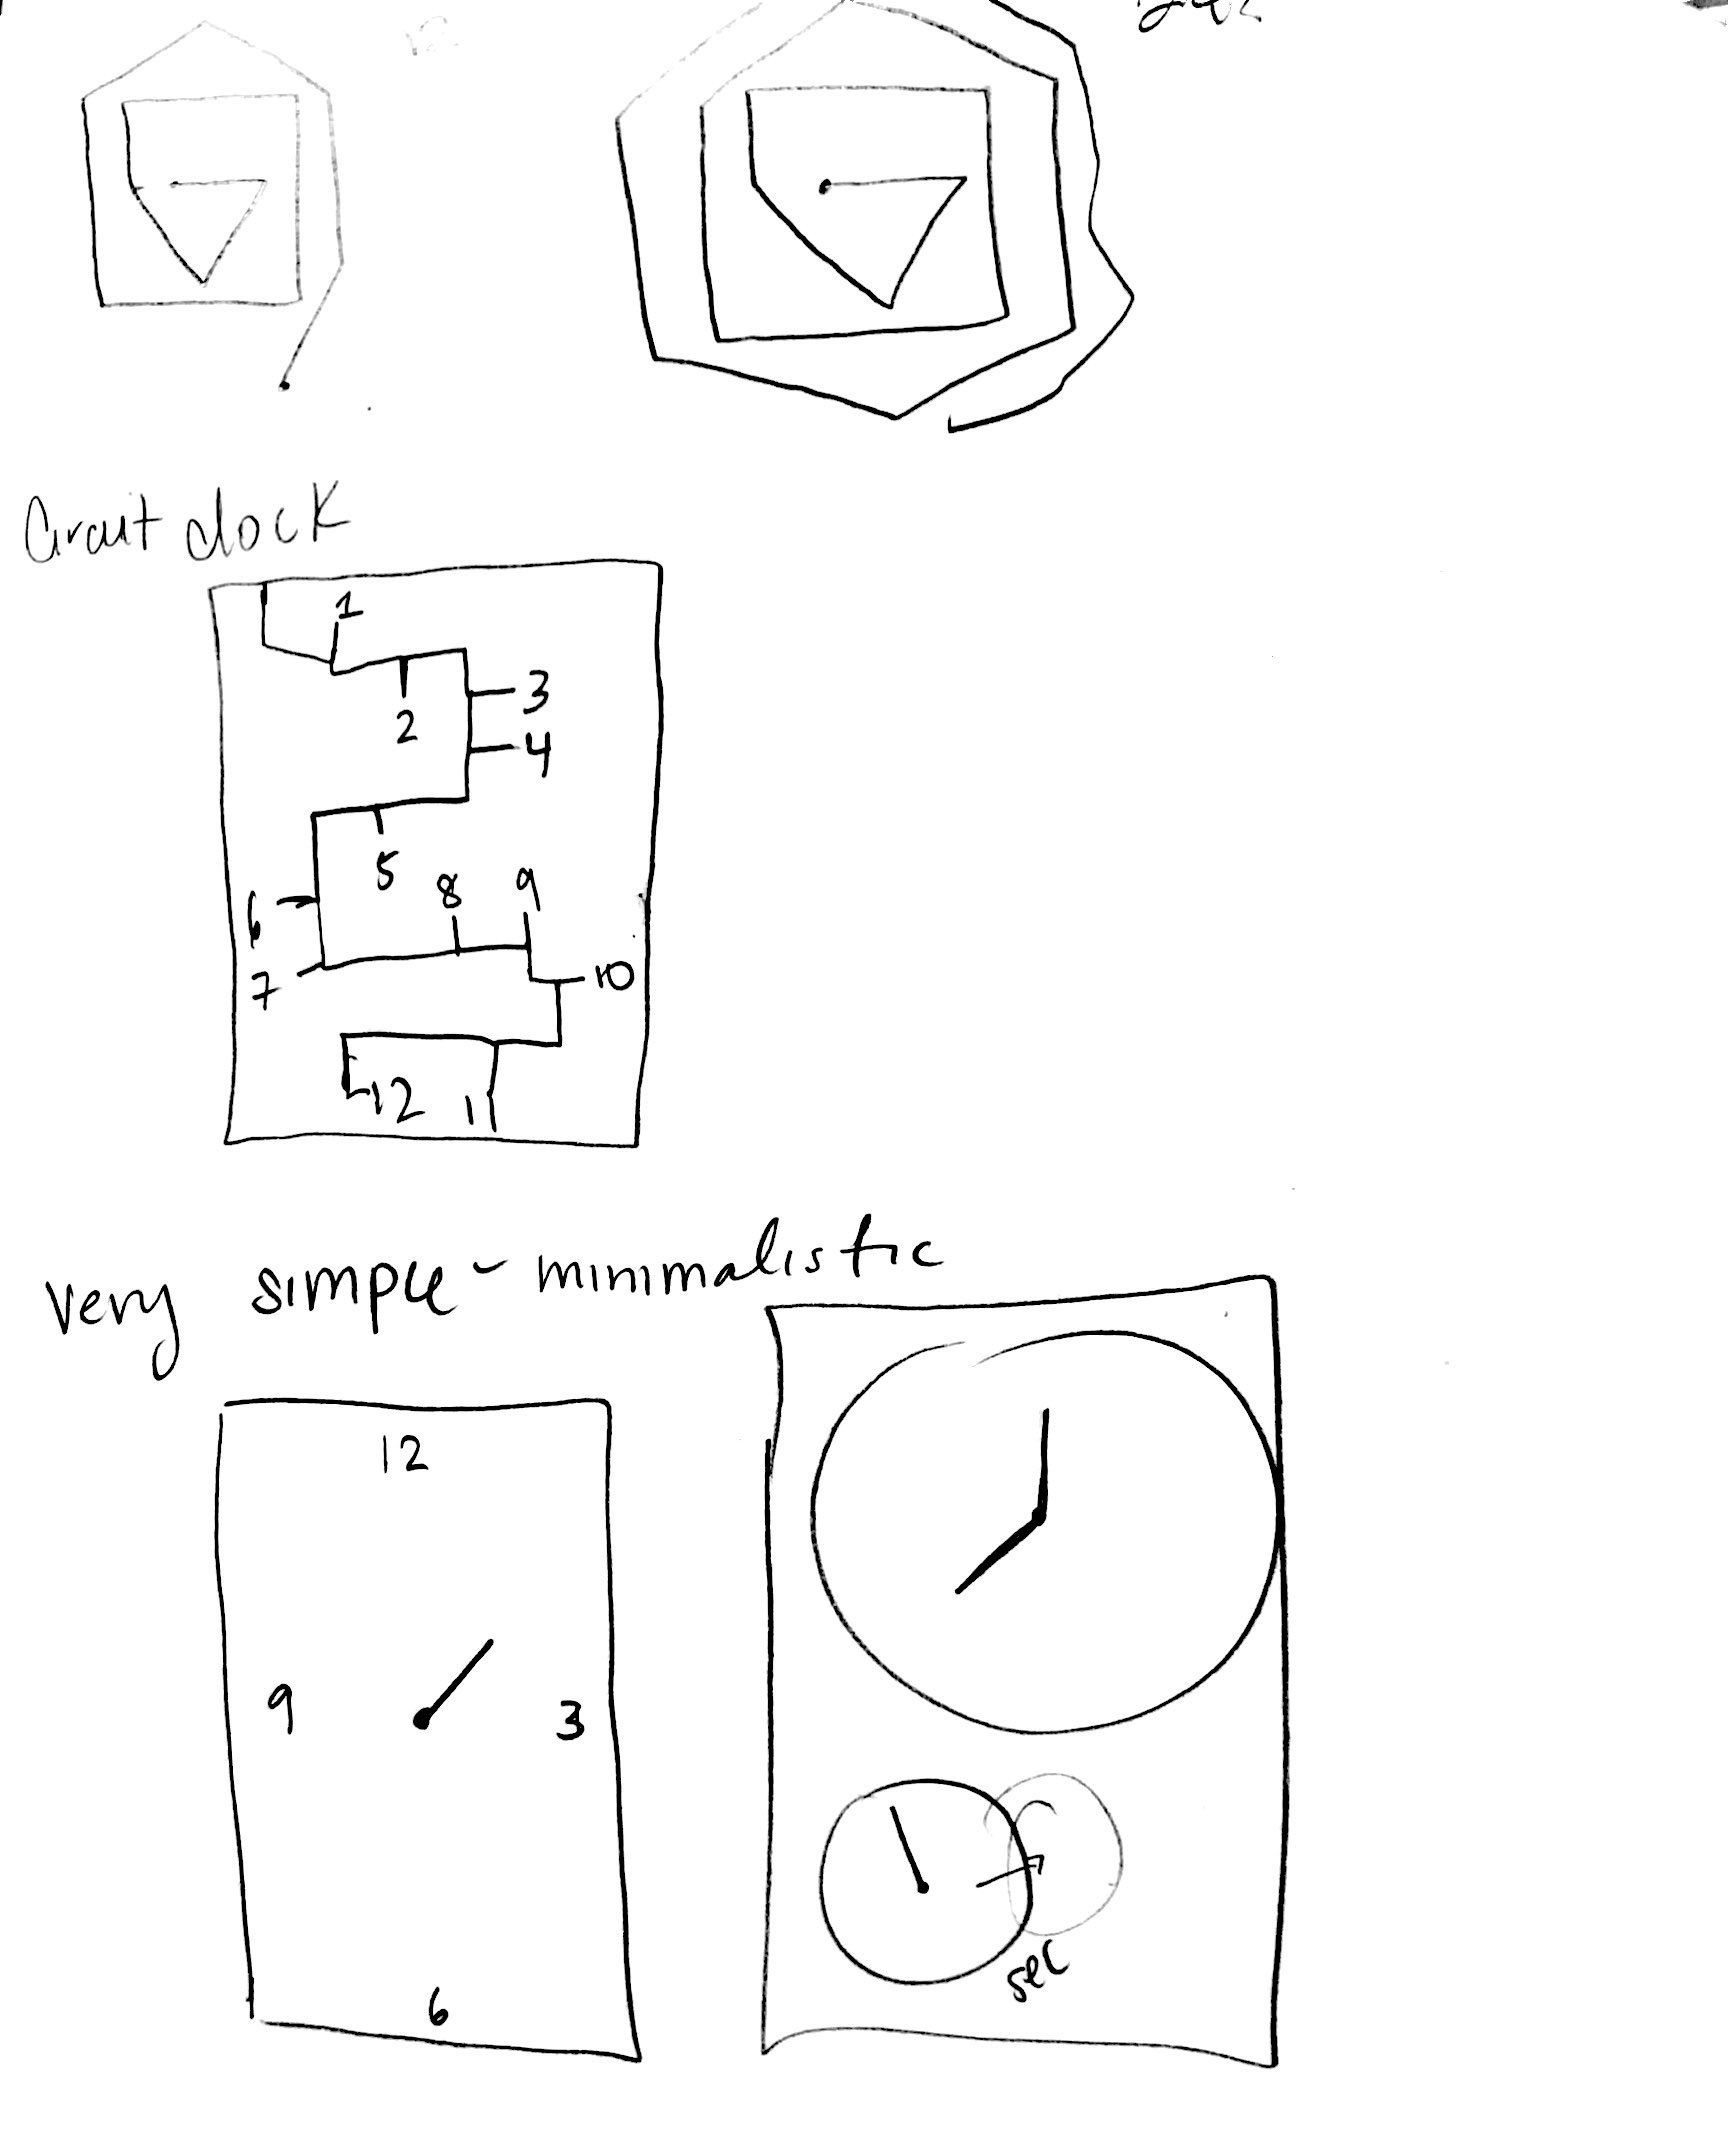 Circuit clock
1
2
3
4
5
6
7
8
9
10
11
12
Very simple - minimalistic
12
9
3
6
sec